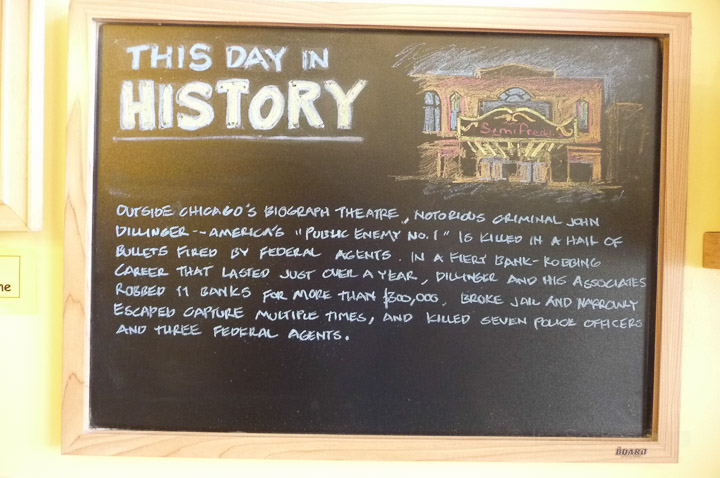 THIS DAY IN
HISTORY
Semifreddi
OUTSIDE CHICAGO'S BIOGRAPH THEATRE, NOTORIOUS CRIMINAL JOHN
DILLINGER--AMERICA'S "PUBLIC ENEMY NO.1" IS KILLED IN A HAIL OF
BULLETS FIRED BY FEDERAL AGENTS. IN A FIERY BANK-ROBBING
CAREER THAT LASTED JUST OVER A YEAR, DILLINGER AND HIS ASSOCIATES
ROBBED 11 BANKS FOR MORE THAN $300,000, BROKE JAIL AND NARROWLY
ESCAPED CAPTURE MULTIPLE TIMES, AND KILLED SEVEN POLICE OFFICERS
AND THREE FEDERAL AGENTS.
ne